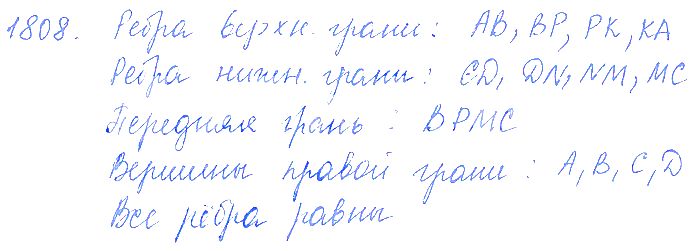 1808. Рёбра верхн. грани: AB, BP, PK, KA
Рёбра нижн. грани: CD, DN, NM, MC
Передняя грань: BPMC
Вершины правой грани: A, B, C, D
Все рёбра равны